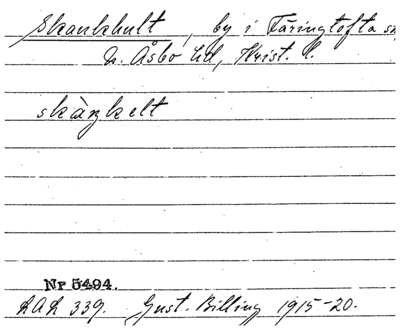 Skankhult, by i Färingtofta sn,
N. Åsbo hd, Krist. l.
skàŋkelt
Nr 5494.
LAL 339. Gust. Billing 1915-20.